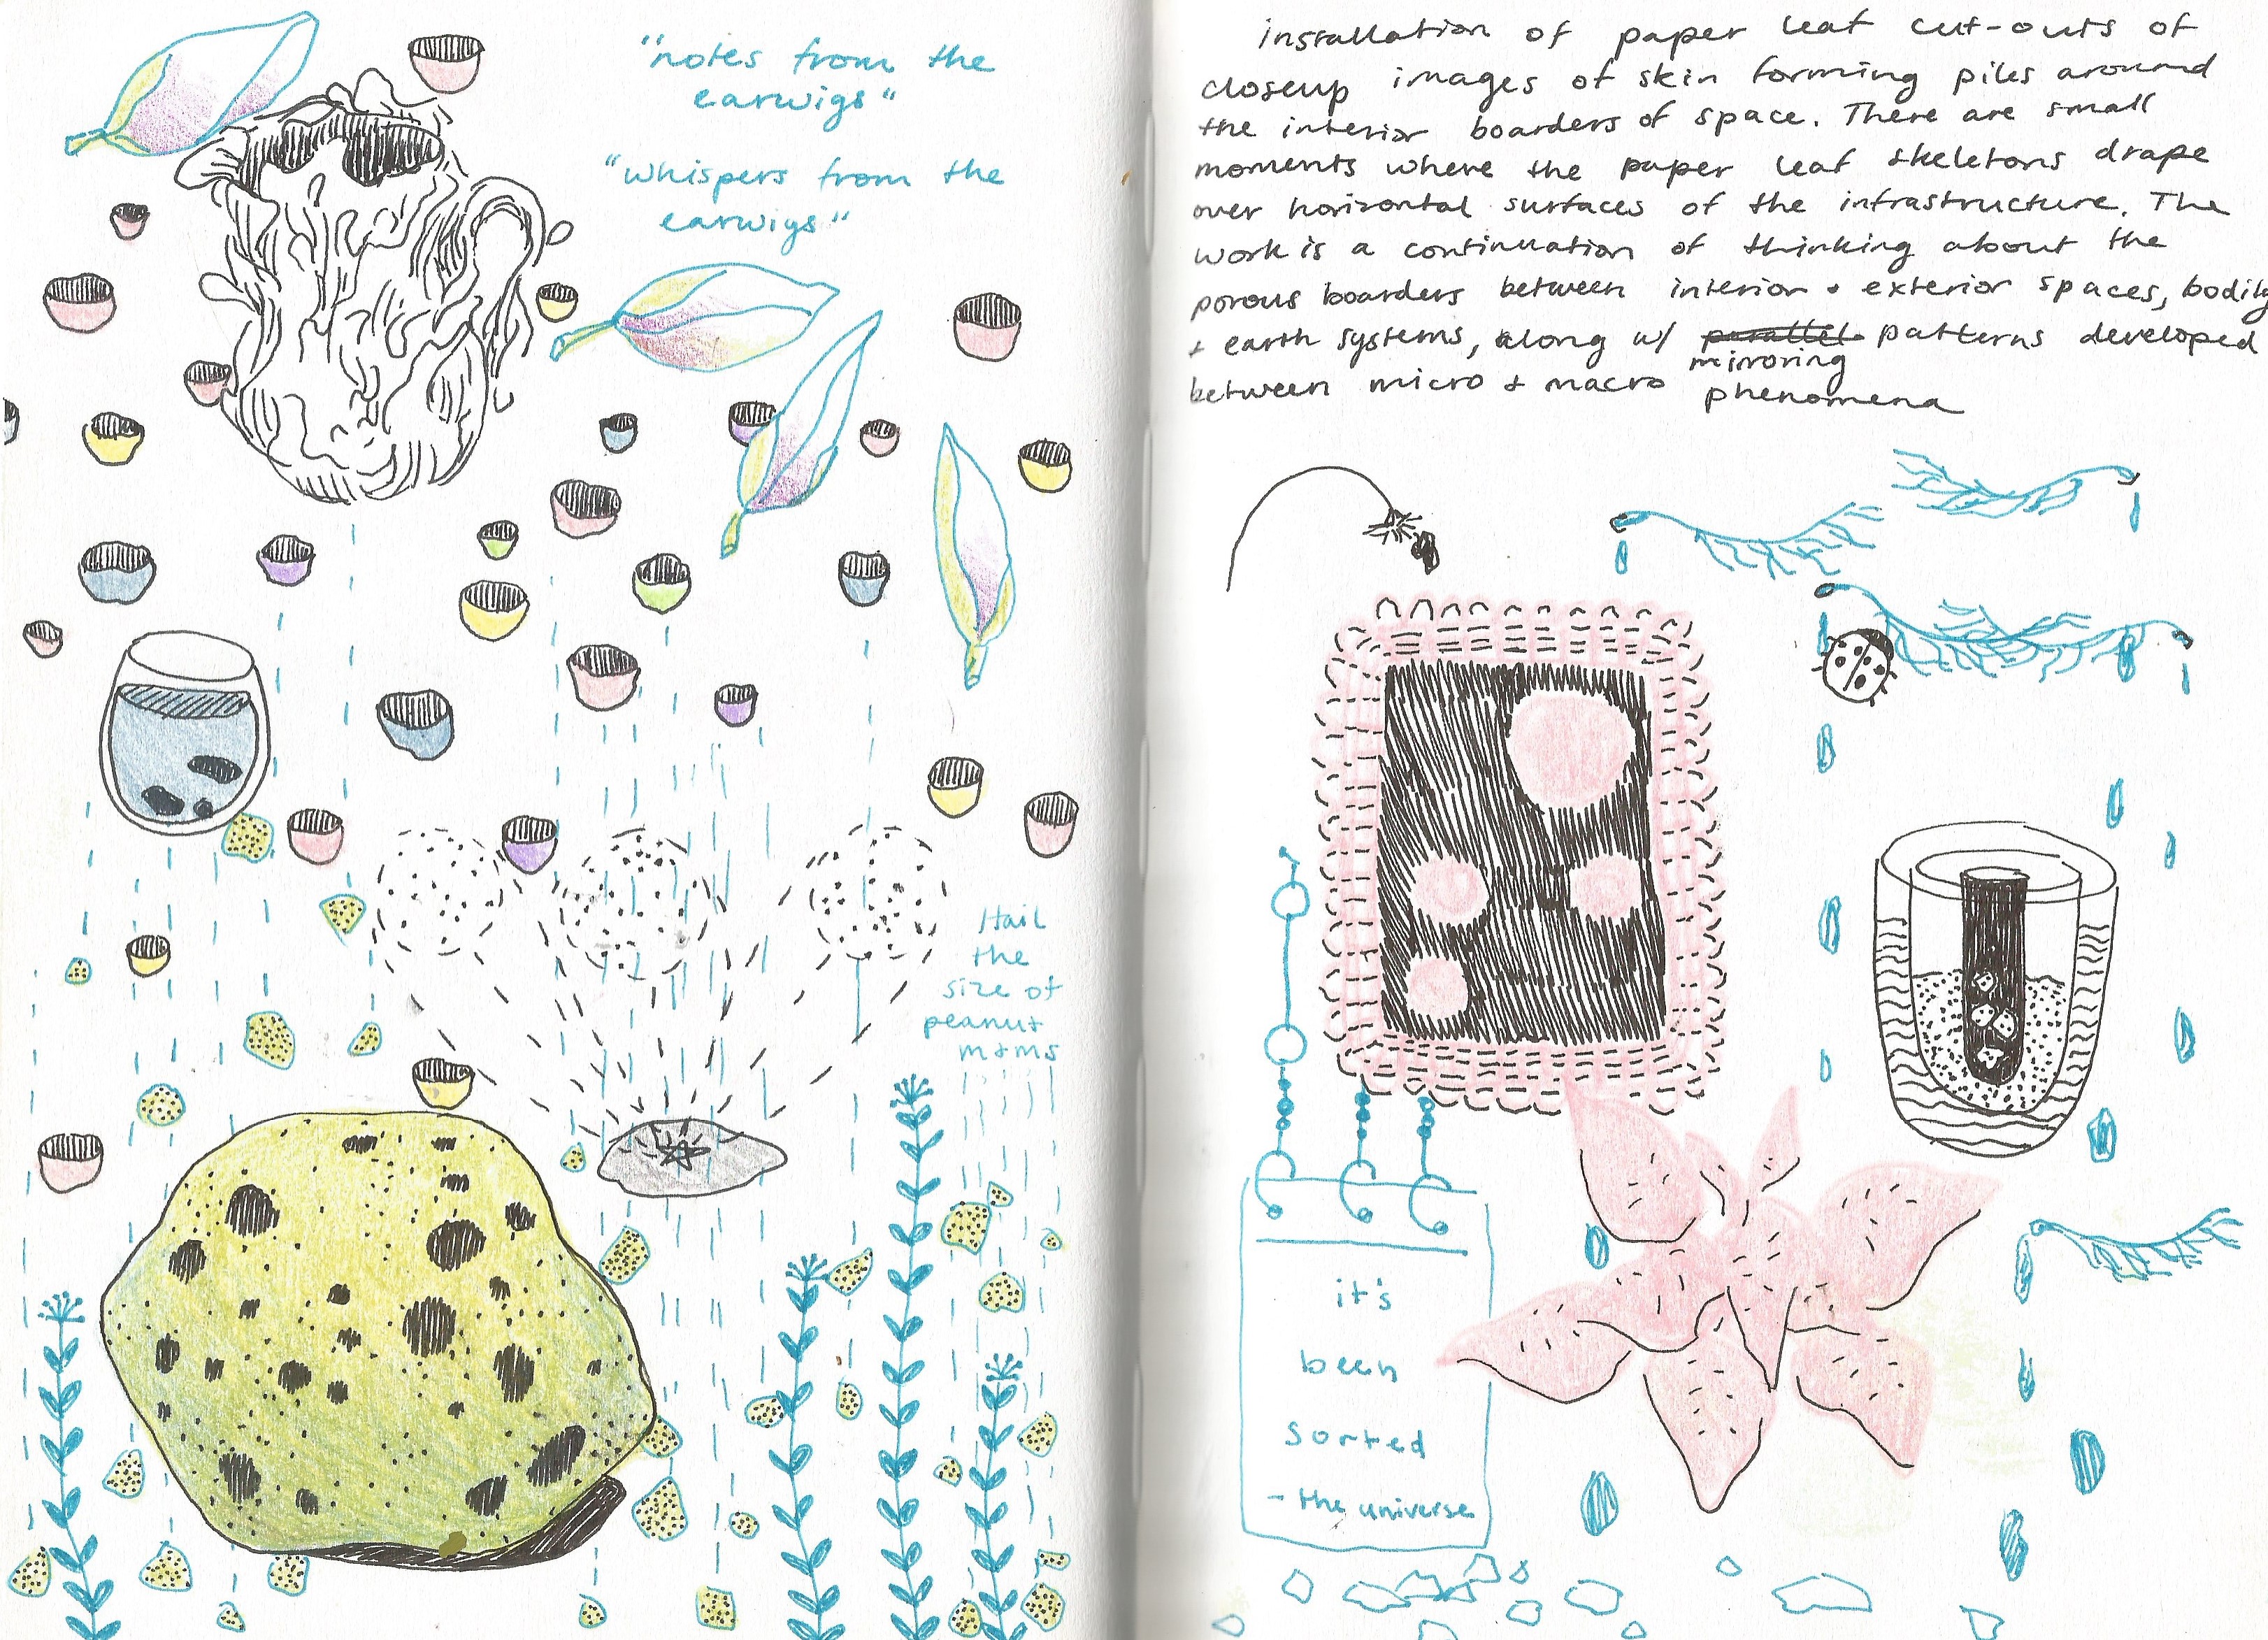 "notes from the
earwigs"
"whispers from the
earwigs"
Hail
the
size of
peanut
m+ms
installation of paper leaf cut-outs of
closeup images of skin forming piles around
the interior boarders of space. There are small
moments where the paper leaf skeletons drape
over horizontal surfaces of the infrastructure. The
work is a continuation of thinking about the
porous boarders between interior + exterior spaces, bodily
+ earth systems, along w/ parallel patterns developed
mirroring
between micro + macro phenomena
it's
been
sorted
- the universe